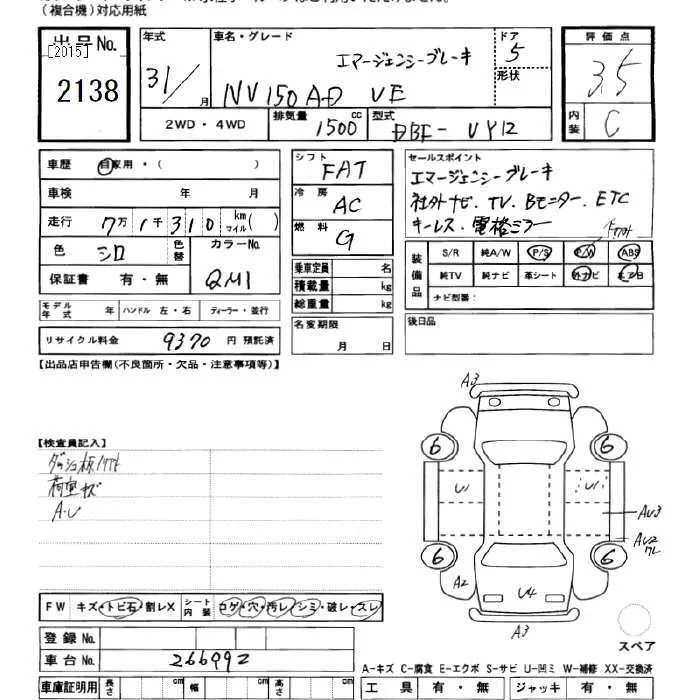 (複合機)対応用紙
出品No.
[2015]
2138
年式
31/
月
車名・グレード
エマージェンシーブレーキ
NV150AD VE
ドア
5
形状
2WD・4WD
排気量
1500
cc
型式
DBF-VY12
評価点
3.5
内装
C
車歴
自家用・( )
車検 年 月
走行 7万1千310 km マイル( )
色 シロ
色替
カラーNo.
QM1
保証書 有・無
シフト
FAT
冷房
AC
燃料
G
乗車定員 名
積載量 kg
総重量 kg
セールスポイント
エマージェンシーブレーキ
社外ナビ. TV. Bモニター. ETC
キーレス. 電格ミラー
装備品
S/R 純A/W P/S P/W ABS
純TV 純ナビ 革シート 外ナビ エアB
ナビ型番:
モデル年式 年 ハンドル 左・右 ディーラー・並行
リサイクル料金 9370 円 預託済
名変期限
月 日
後日品
【出品店申告欄(不良箇所・欠品・注意事項等)】
【検査員記入】
荷室キズ
A-U
A3
6
6
U1
U1
AU3
AU2
6
6
A2
U4
A3
スペア
FW キズ・トビ石・割レX
シート内装 コゲ・穴・汚レ・シミ・破レ・スレ
登録No.
車台No. 266992
A-キズ C-腐食 E-エクボ S-サビ U-凹ミ W-補修 XX-交換済
車庫証明用 長さ cm 幅 cm 高さ cm
工具 有・無 ジャッキ 有・無